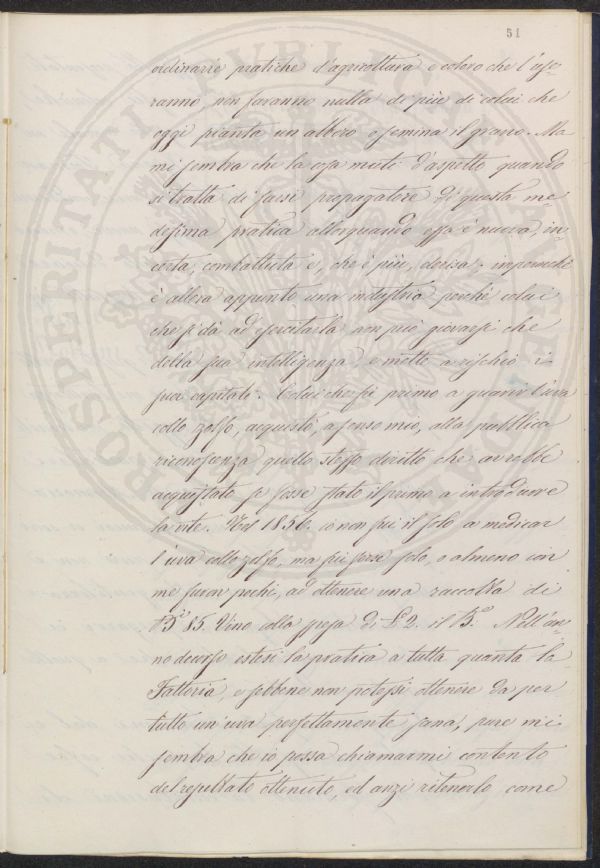 51
ordinarie pratiche d'agricoltura e coloro che l'use-
ranno non faranno nulla di più di colui che
oggi pianta un albero o semina il grano. Ma
mi sembra che la cosa muti d'aspetto quando
si tratta di farsi propagatore di questa me-
desima pratica allorquando essa è nuova, in-
certa, combattuta e, che è più, derisa; imperocchè
è allora appunto una industria perchè colui
che si dà ad esercitarla non può giovarsi che
della sua intelligenza, e mette a rischio i
suoi capitali. Colui che fu primo a guarir l'uva
collo zolfo, acquistò, a senso mio, alla pubblica
riconoscenza quello stesso diritto che avrebbe
acquistato se fosse stato il primo a introdurre
la vite. Nel 1856. io non fui il solo a medicar
l'uva collo zolfo, ma fui forse solo, o almeno con
me furon pochi, ad ottenere una raccolta di
B.i 85. Vino colla spesa di £ 2. il B.o Nell'an-
no decorso estesi la pratica a tutta quanta la
Fattoria, e sebbene non potessi ottenere da per
tutto un'uva perfettamente sana, pure mi
sembra che io possa chiamarmi contento
del resultato ottenuto, ed anzi ritenerlo come
PROSPERITATI PUBLICAE